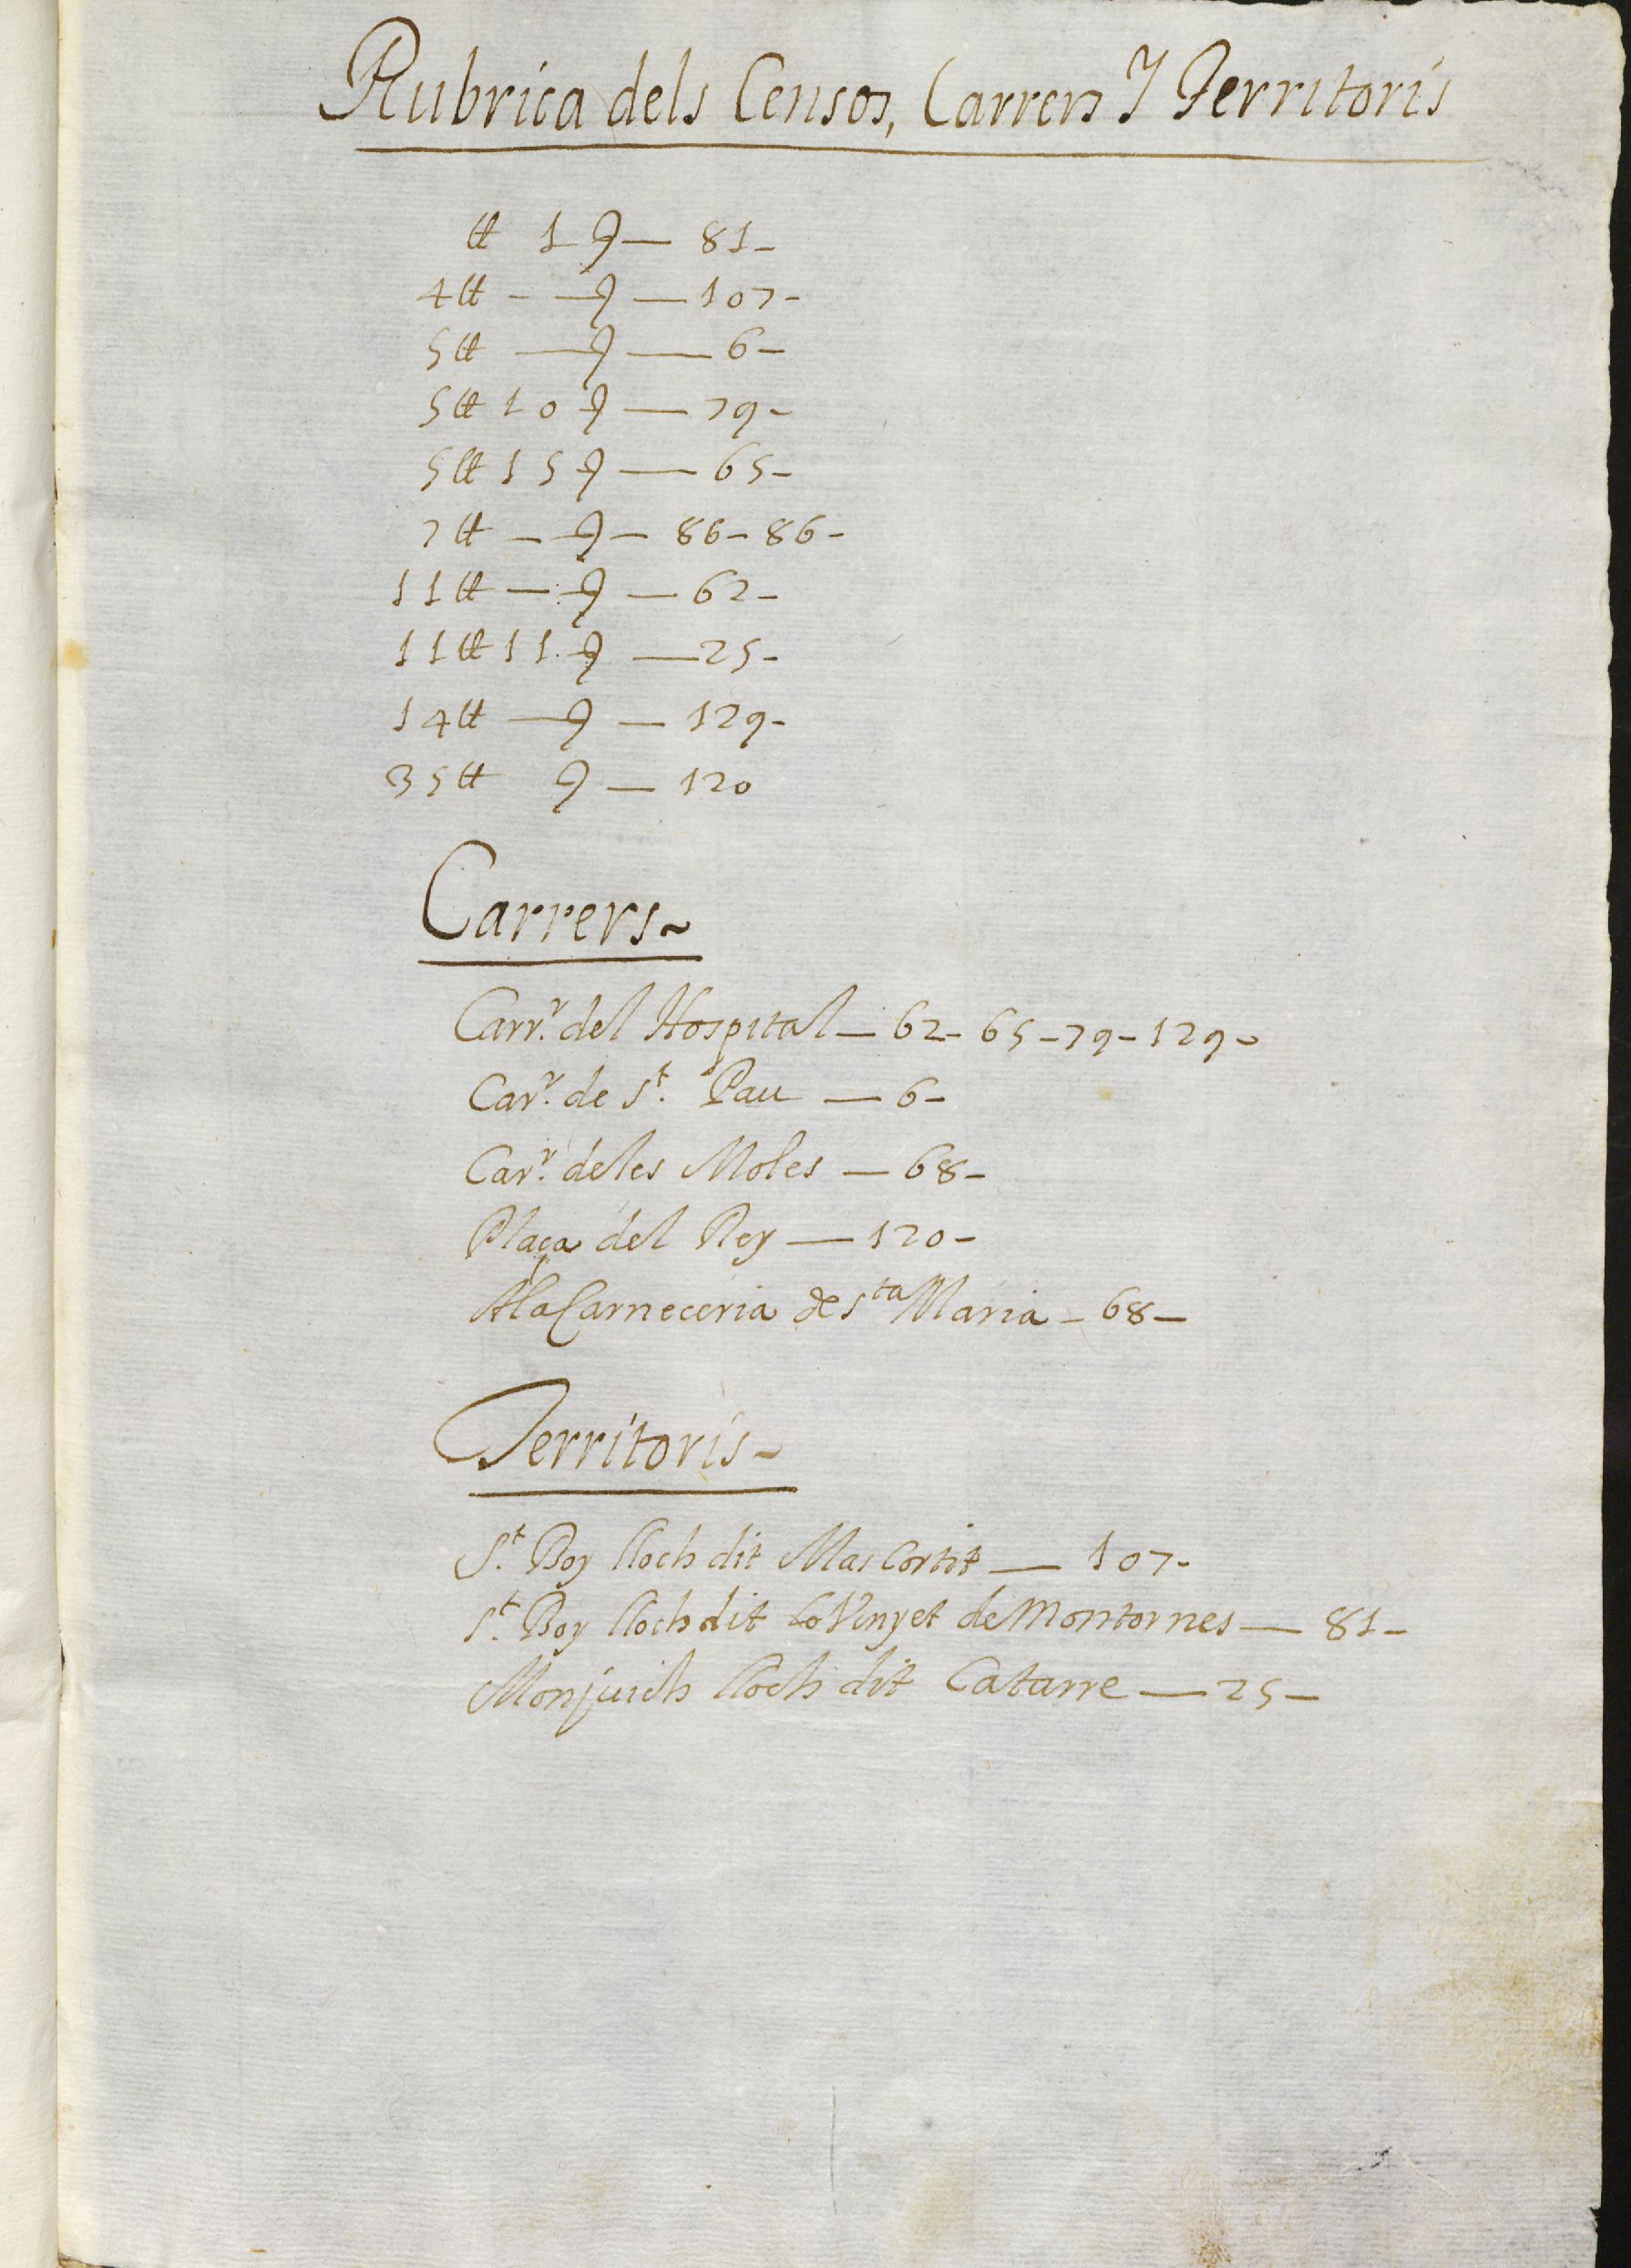 Rubrica dels Censos, Carrers Y Territoris
ll 1 s — 81 -
4 ll - — s — 107 -
5 ll — s — 6 -
5 ll 10 s — 79 -
5 ll 15 s — 65 -
7 ll — s — 86 - 86 -
11 ll — s — 62 -
11 ll 11 s — 25 -
14 ll — s — 129 -
35 ll s — 120
Carrers ~
Carr.r del Hospital — 62 - 65 - 79 - 129 -
Car.r de St. Pau — 6 -
Car.r deles Moles — 68 -
Plaça del Rey — 120 -
Ala Carneceria de Sta Maria - 68 -
Territoris -
St. Boy lloch dit Mas Cortit — 107 -
St. Boy lloch dit Lo Vinyet de Montornes — 81 -
Monjuich lloch dit Catarre — 25 -